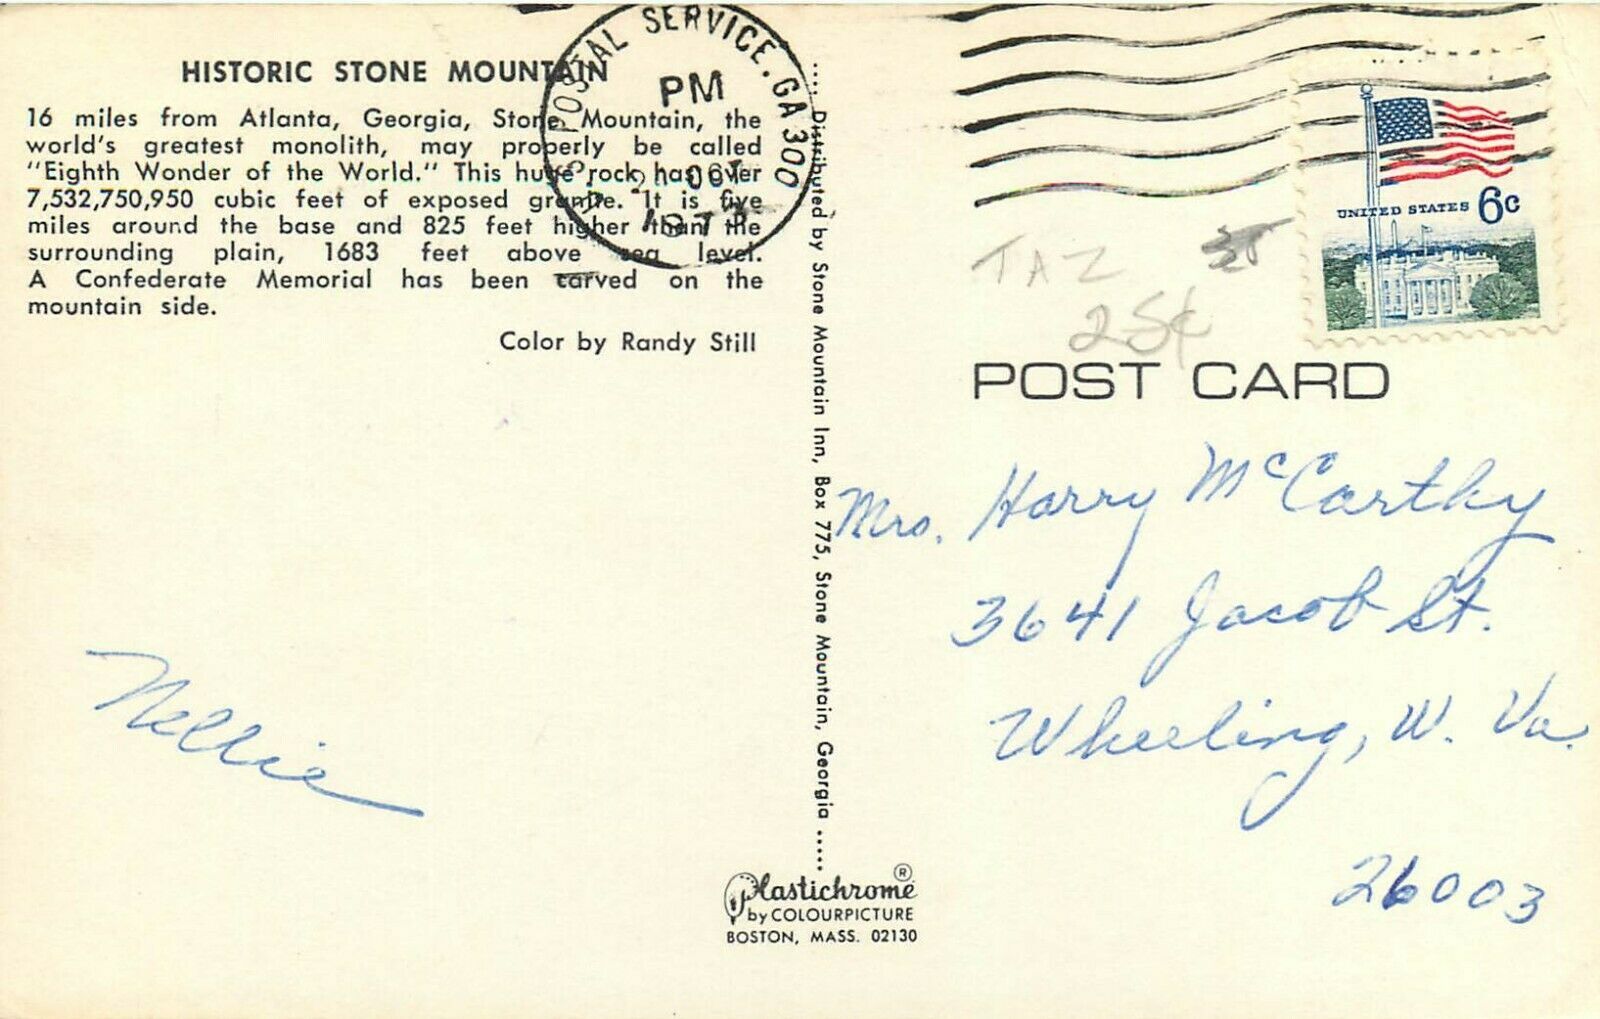 HISTORIC STONE MOUNTAIN
16 miles from Atlanta, Georgia, Stone Mountain, the
world's greatest monolith, may properly be called
"Eighth Wonder of the World." This huge rock has over
7,532,750,950 cubic feet of exposed granite. It is five
miles around the base and 825 feet higher than the
surrounding plain, 1683 feet above sea level.
A Confederate Memorial has been carved on the
mountain side.
Color by Randy Still
Nellie
POSTAL SERVICE, GA 300
PM
OCT
.... Distributed by Stone Mountain Inn, Box 775, Stone Mountain, Georgia ......
Plastichrome ®
by COLOURPICTURE
BOSTON, MASS. 02130
UNITED STATES 6c
TAZ
25¢
POST CARD
Mrs. Harry McCarthy
3641 Jacob St.
Wheeling, W. Va.
26003